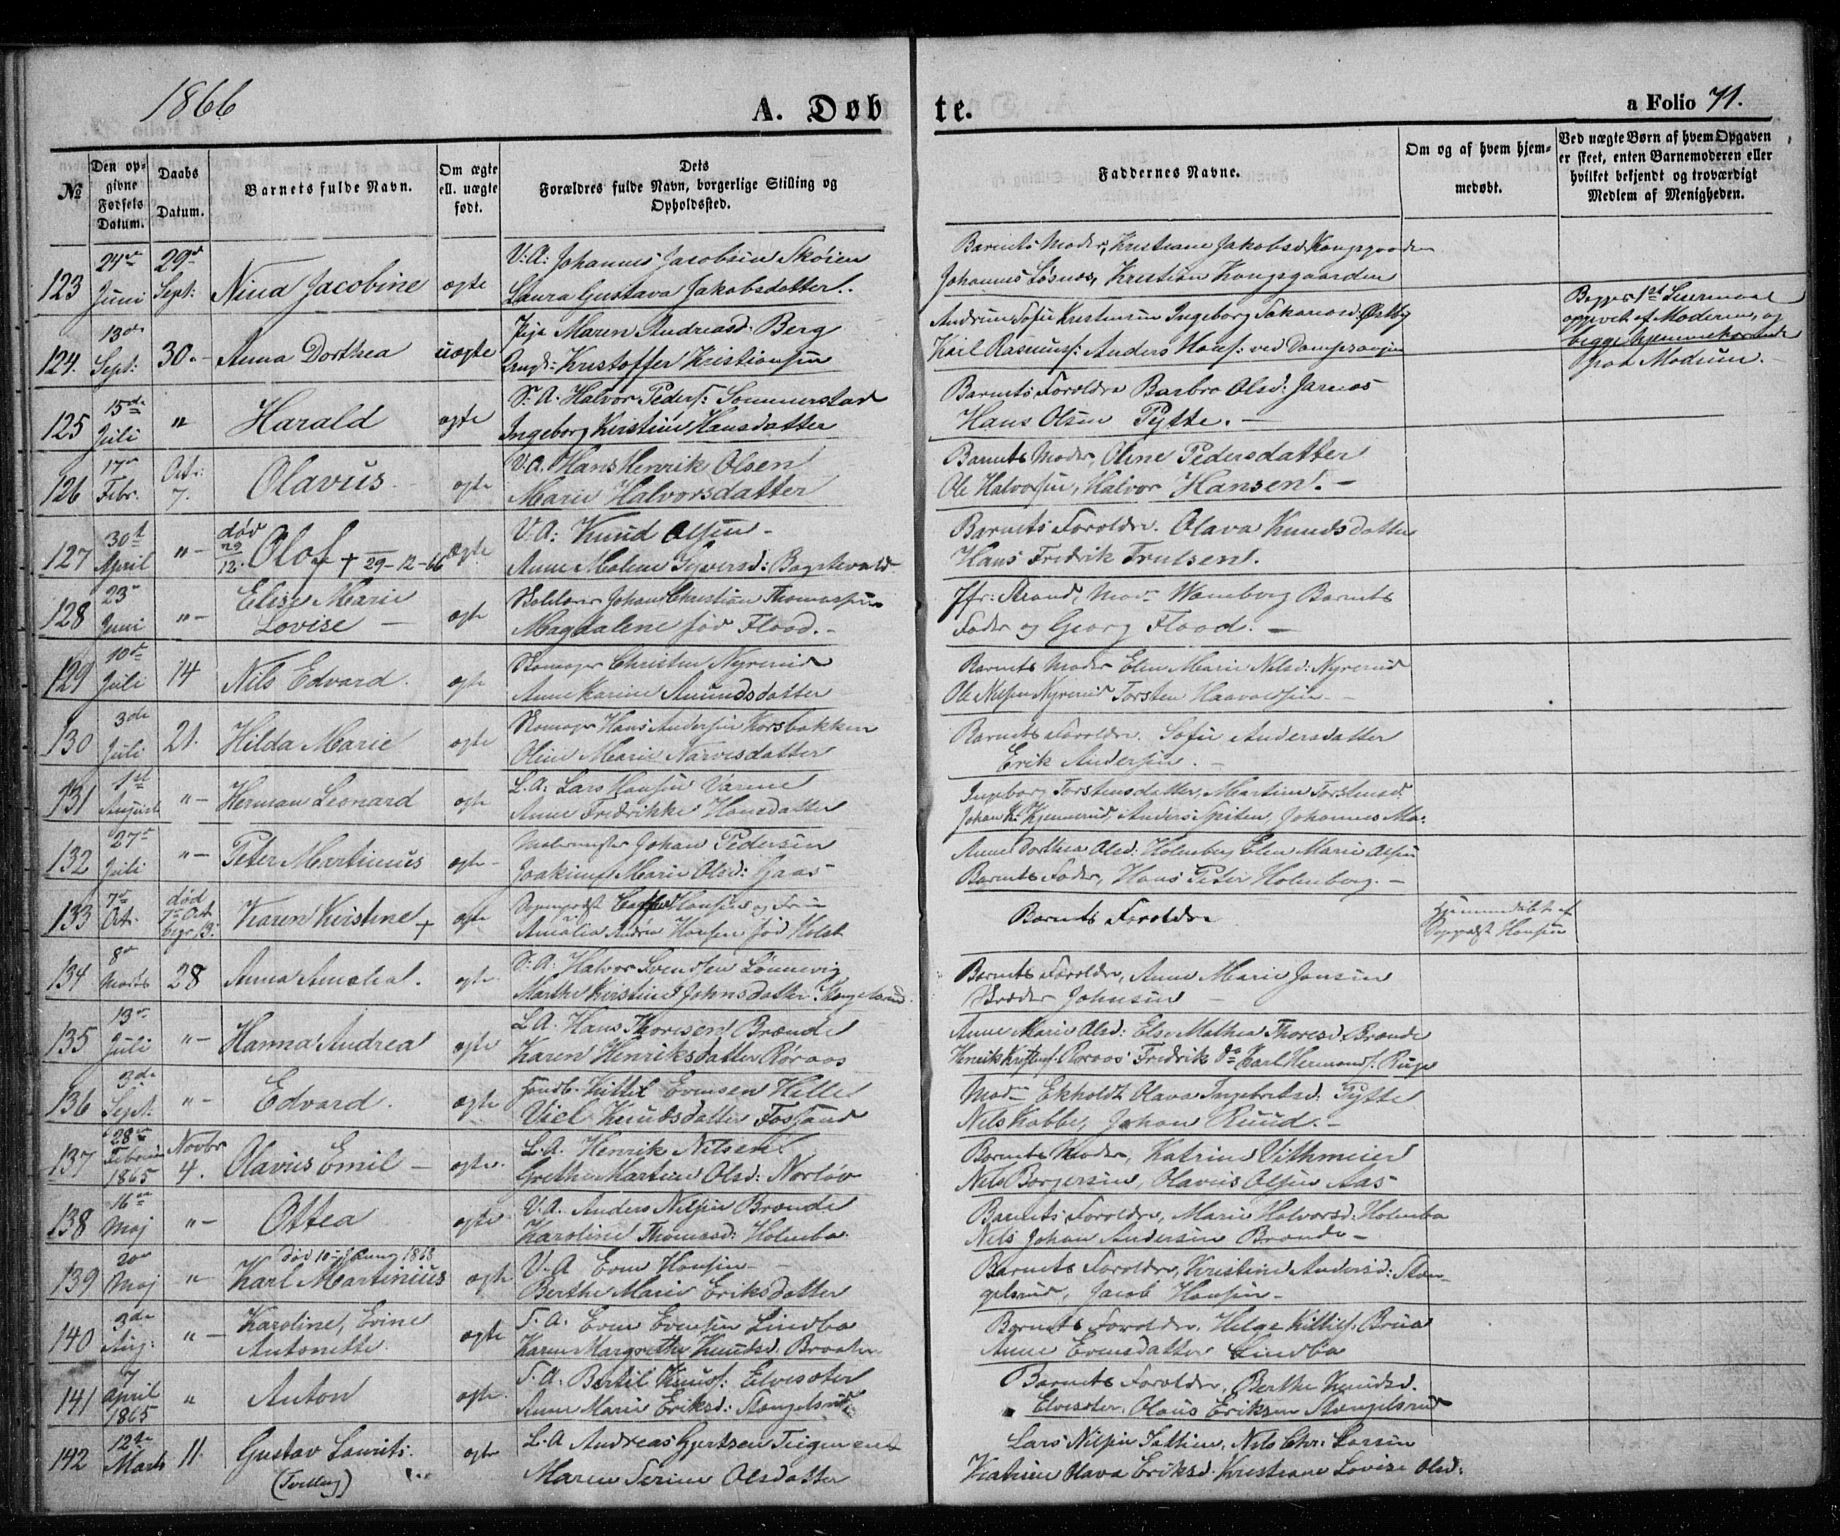 1866
A. Døbte.
a Folio 71.
№
Den opgivne Fødsels Datum.
Daabs Datum.
Barnets fulde Navn.
Om ægte ell. uægte født.
Dets Forældres fulde Navn, borgerlige Stilling og Opholdssted.
Faddernes Navne.
Om og af hvem hjemmedøbt.
Ved uægte Børn af hvem Opgaven er skeet, enten Barnemoderen eller hvilket bekjendt og troværdigt Medlem af Menigheden.
123 24de Juni 29de Sept: Nina Jacobine ægte
V.A: Johannes Jacobsen Skøien
Laura Gustava Jakobsdatter.
Barnets Moder, Kristiane Jakobsd. Kongsgaarden
Johannes Løsnæs, Kristian Kongsgaarden
124. 13de Sept: 30. Anna Dorthea uægte
Pige Maren Andreasd: Berg
Ungk: Kristoffer Kristiansen
Andrine Sofie Kristensen Ingeborg Østby
Karl Rasmuss: Anders Hans: ved Dampsaugen
Begges 1ste Leiermaal
opgivet af Moderen, og
begge hjemmehørende
paa Modum.
125 15de Juli " Harald ægte
S.A. Halvor Peders: Sommerstad
Ingeborg Kirstine Hansdatter
Barnets Forældre Barbro Olsd: Jarnæs
Hans Olsen Pytte. —
126 17de Febr. Oct: 7. Olavus ægte
V.A. Hans Henrik Olsen
Marie Halvorsdatter
Barnets Moder, Oline Pedersdatter
Ole Halvorsen, Halvor Hansen. —
127 30te April "— død 29/12. Olof + 29-12-66 ægte
V.A: Knud Olsen —
Anne Malene
Barnets Forældre. Olava Knudsdatter
Hans Fredrik Trulsen.
128 23de Juni "— Elise Marie Lovise — ægte
Johan Christian Thomassen
Magdalene fød Flood. —
Jfr: Strand, Mad. Wamberg Barnets
Fader og Georg Flood. —
129 10de Juli 14 Nils Edvard. ægte
Skomager Christen Nyrerud
Anne Karine Amundsdatter
Barnets Moder Elen Marie Nilsd: Nyrerud
Ole Nilsen Nyrerud Torsten Haavaldsen —
130 3de Juli 21. Hilda Marie ægte
Skomager Hans Andersen Korsbakken
Oline Marie Narvesdatter
Barnets Forældre. Sofie Andersdatter
Erik Andersen. —
131 1ste August "— Herman Leonard ægte
L.A: Lars Hansen
Anne Fredrikke Hansdatter
Ingeborg Torstensdatter, Martine Torstensd.
Johan Kr. Kjennerud, Anders Spiten, Johannes
132 27de Juli "— Peter Martinius ægte
Malermester Johan Pedersen
Marie Olsd: Gaas
Anne Dorthea Olsd: Holmberg Elen Marie Olsen
Barnets Fader, Hans Peter Holmberg. —
133 7de Oct. død 7de Oct. begr. 13. Karen Kirstine + ægte
Sogneprest Hansen og Frue
Amalia Andrea Hansen fød Holst
Barnets Forældre
Hjemmedøbt af
Sogneprest Hansen
134 8de Marts 28 Anna Amalia. ægte
S.A. Halvor Svendsen Lønnevig
Marthe Kirstine Johnsdatter Stengelsrud.
Barnets Forældre, Anne Marie Jansen
Johnsen —
135 13de Juli "— Hanna Andrea ægte
L.A. Hans Thoresen Brænde
Karen Henriksdatter Røraas
Anne Marie Olsd: Else Mathea Thoresd. Brænde
Henrik Røraas Fredrik do Karl Hermans: Ruge
136 3de Sept: "— Edvard. ægte
Kittil Evensen Helle
Viel Knudsdatter Fossand
Mad. Ekholdt Olava Ingebretsd. Pytte
Nils Kabbe, Johan Ruud. —
137 28de Februar 1865 Novbr 4. Olavus Emil — ægte
L.A. Henrik Nilsen
Grethe Martine Olsd: Norløv
Barnets Moder, Katrine Vithmeier
Nils Borgersen, Olavus Olsen Aas
138 16de Maj "— Ottea ægte
V.A. Anders Nilsen Brænde
Karoline Thomasd: Holmbo
Barnets Forældre, Marie Halvorsd: Holmbo
Nils Johan Andersen Brænde —
139 20de Maj " død 1868 Karl Martinius ægte
V.A Even Hansen —
Berthe Marie Eriksdatter
Barnets Forældre, Kristine Andersd: Stengelsrud, Jacob Hansen —
140 3de Aug. "— Karoline, Evine Antonette ægte
S.A. Even Evensen Lindbo
Karen Margrethe Knudsd. Braaten
Barnets Forældre. Helge Kittils: Brua
Anne Evensdatter Lindbo
141 7 april 1865 " Anton ægte.
S.A. Bertil Knuts: Elvesæter
Anne Marie Eriksd: Stengelsrud
Barnets Forældre, Berthe Knudsd.
Elvesæter, Olaus Eriksen Stengelsrud
142 12te Marts 11. Gustav Laurits. (Tvilling) ægte
L.A Andreas Gjertsen Teigen
Maren Serine Olsdatter
Lars Nilsen, Nils Chr: Larsen
Katrine Olava Eriksd. Kristiane Lovise Olsd: